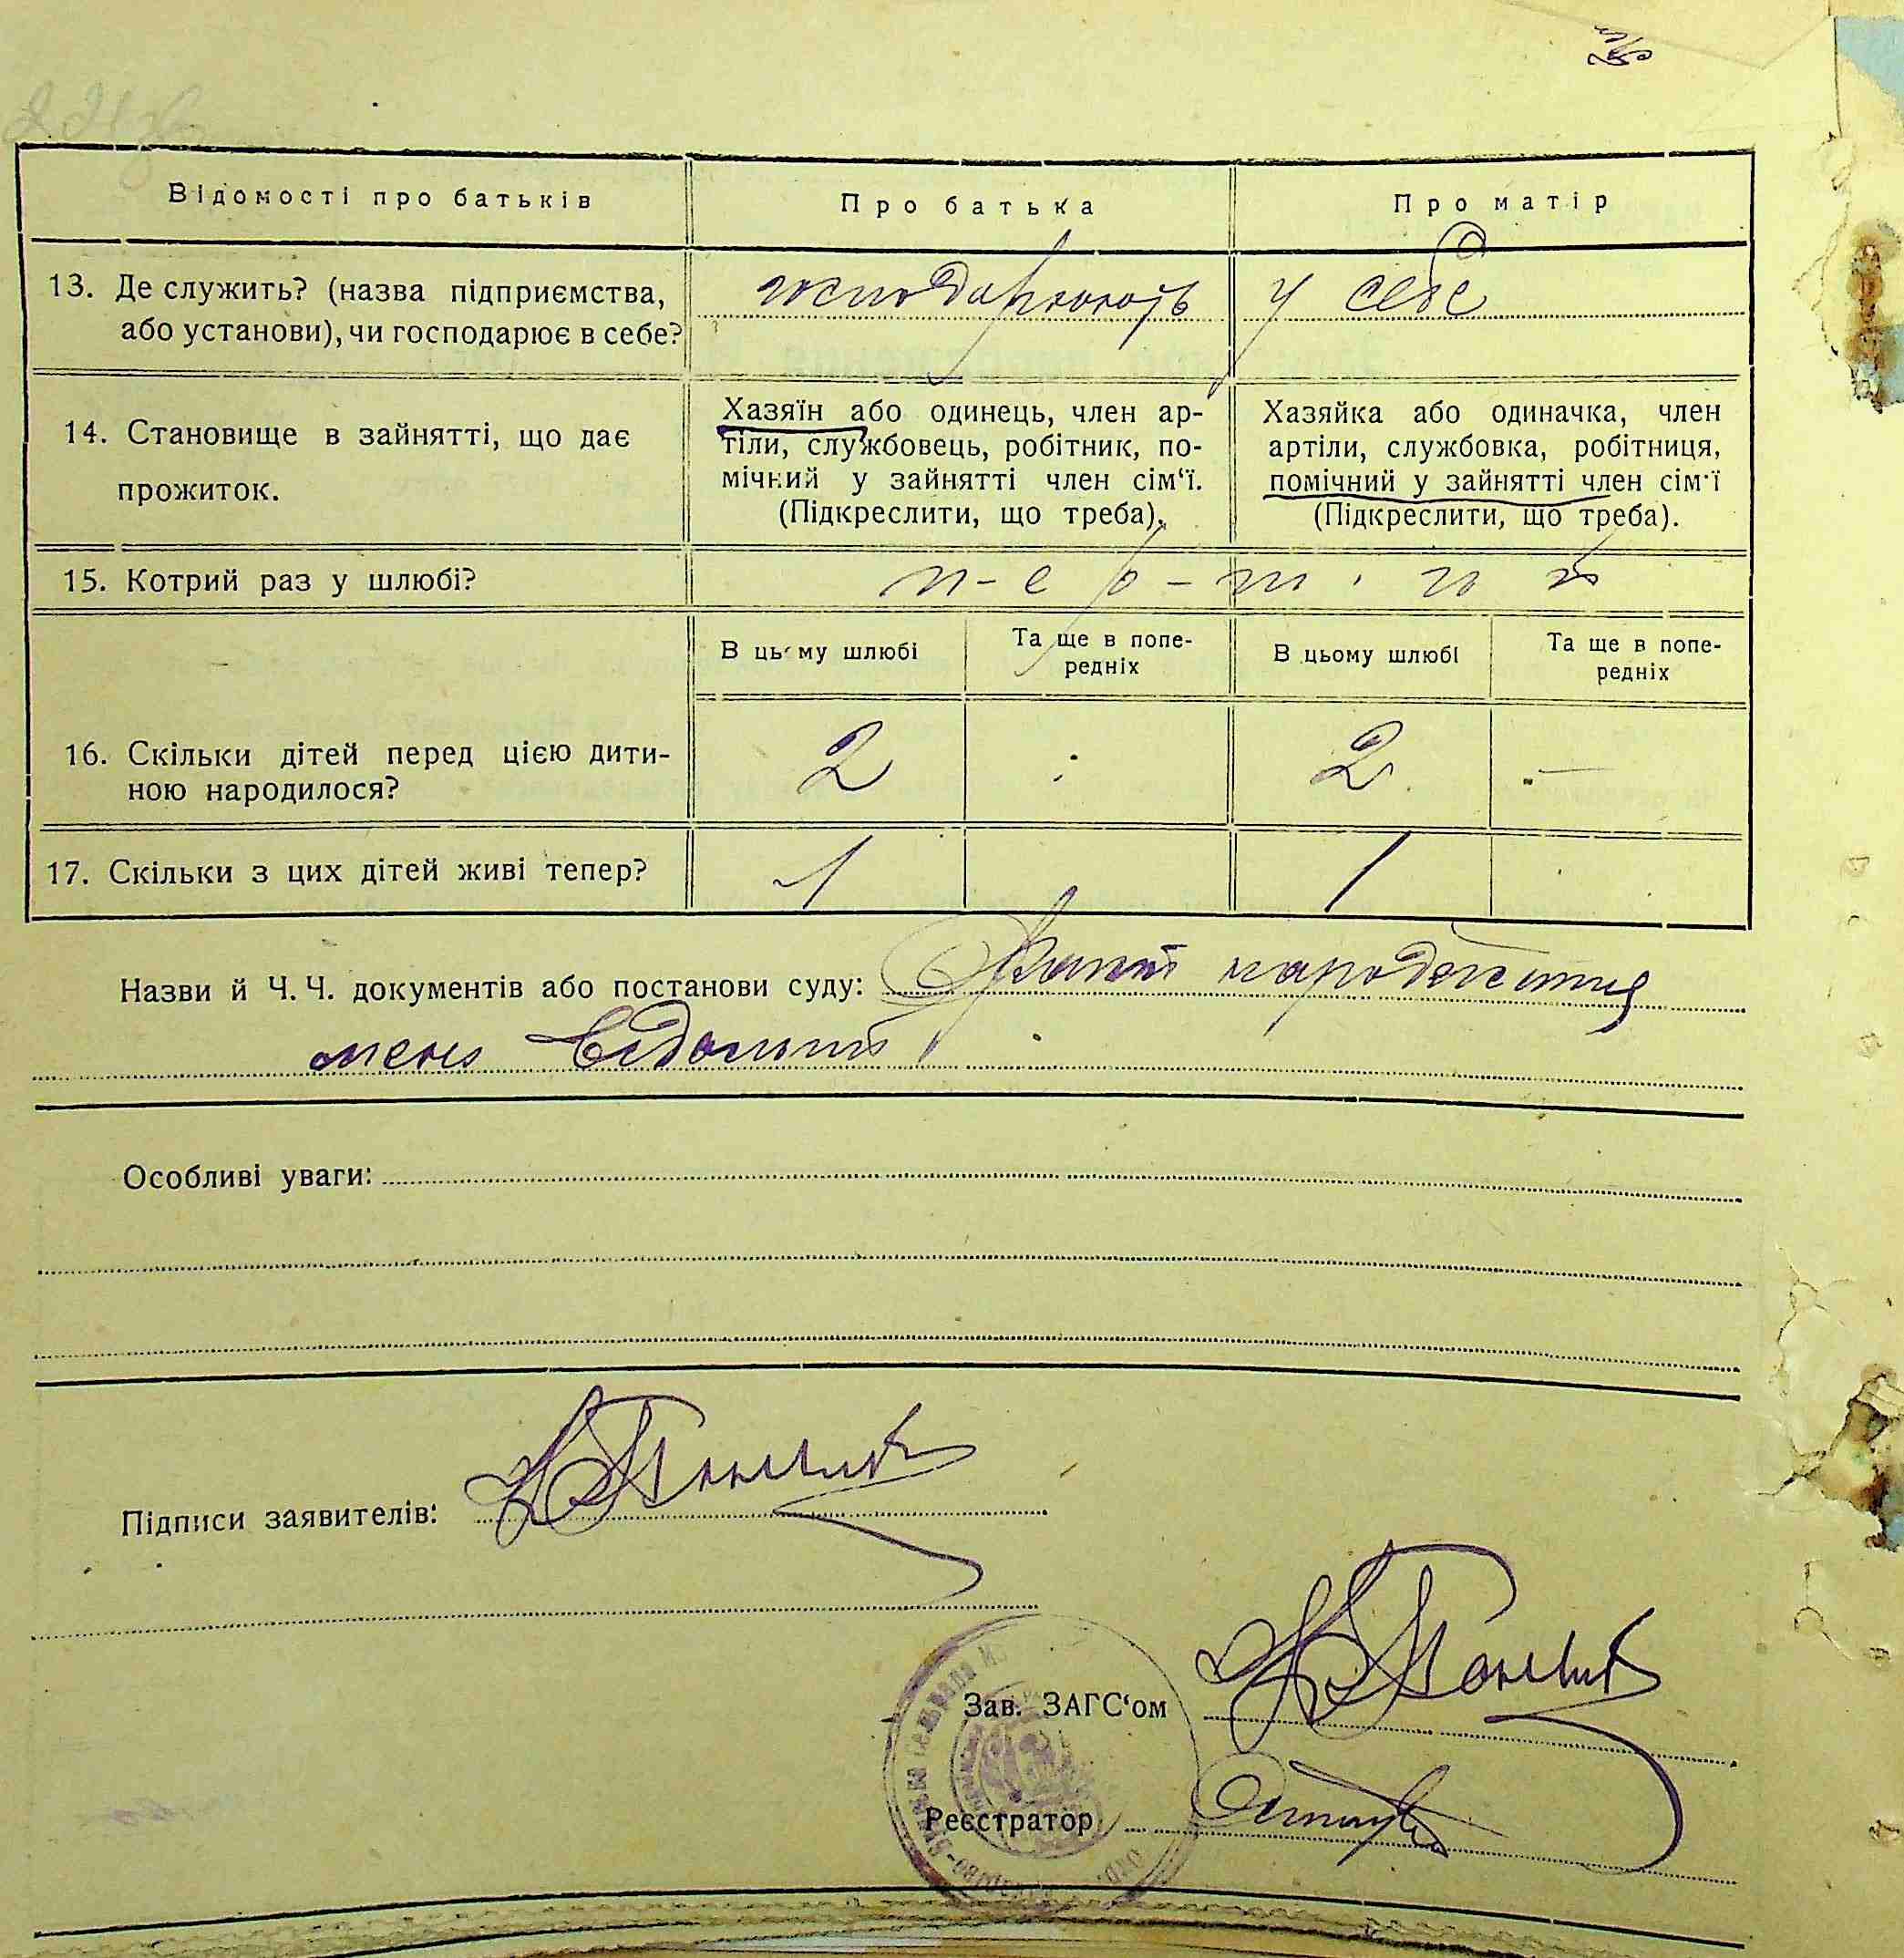 Відомості про батьків
Про батька
Про матір
13. Де служить? (назва підприємства,
або установи), чи господарює в себе?
господарюють у себе
14. Становище в зайнятті, що дає
прожиток.
Хазяїн або одинець, член ар-
тіли, службовець, робітник, по-
мічний у зайнятті член сім'ї.
(Підкреслити, що треба).
Хазяйка або одиначка, член
артіли, службовка, робітниця,
помічний у зайнятті член сім'ї
(Підкреслити, що треба).
15. Котрий раз у шлюбі?
В цьому шлюбі
Та ще в попе-
редніх
В цьому шлюбі
Та ще в попе-
редніх
16. Скільки дітей перед цією дити-
ною народилося?
2
2
—
17. Скільки з цих дітей живі тепер?
1
1
Назви й Ч. Ч. документів або постанови суду: Факт народження
мені відомий
Особливі уваги:
Підписи заявителів:
Зав. ЗАГС'ом
Реєстратор